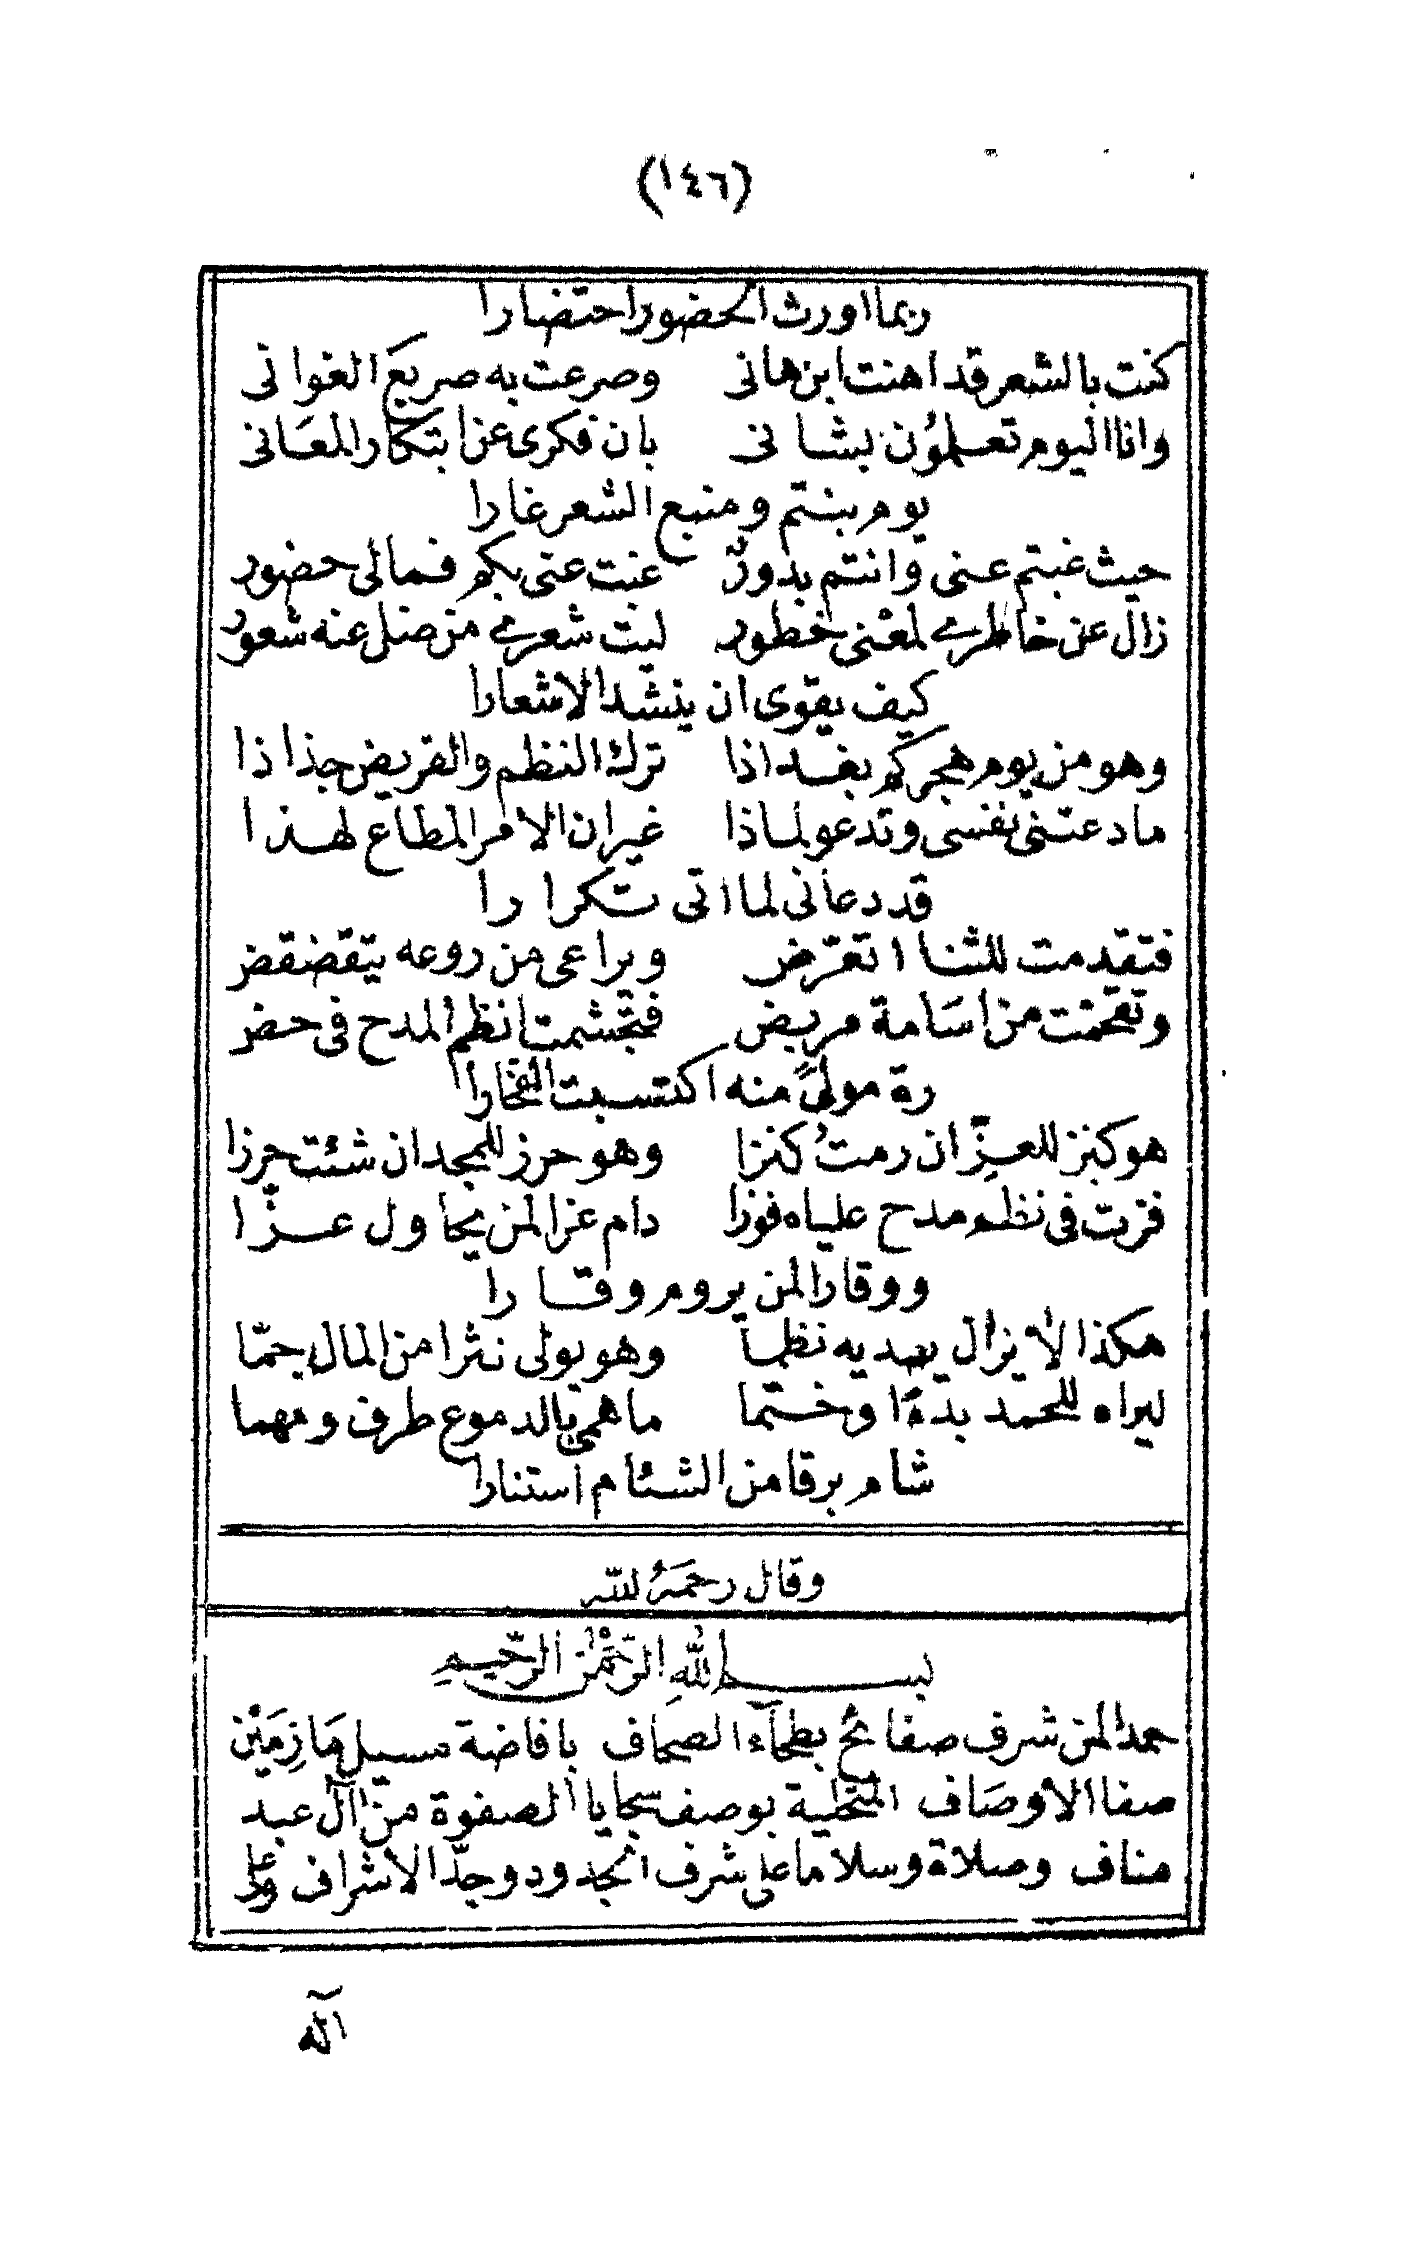 (١٤٦)
ربما اورث الحضور احتضارا
كنت بالشعر قد اهنت ابن هانى وصرعت به صريع الغوانى
وانا اليوم تعلمون بشانى بان فكرى عن ابتكار المعانى
يوم بنتم ومنبع الشعر غارا
حيث غبتم عنى وانتم بدور غبت عنى بكم فمالى حضور
زال عن خاطرى لمعنى خطور ليت شعرى من ضل عنه شعور
كيف يقوى ان ينشد الاشعارا
وهو من يوم هجركم بغداذا ترك النظم والقريض جذاذا
ما دعتنى نفسى وتدعو لماذا غير ان الامر المطاع لهذا
قد دعانى لما اتى تكرارا
فتقدمت للثنا اتعرّض ويراعى من روعه يتقضقض
وتقحمت من اسامة مربض فتجشمت انظم المدح فى حض
رة مولىً منه اكتسبت الفخارا
هو كنز للعزّ ان رمت كنزا وهو حرز للمجد ان شئت حرزا
فزت فى نظم مدح علياه فوزا دام عزا لمن يحاول عزّا
ووقارا لمن يروم وقارا
هكذا لا يزال يهديه نظما وهو يولى نثرا من المال جمّا
ليراه للحمد بدءًا وختما ما همى بالدموع طرف ومهما
شام برقا من الشئام استنارا
وقال رحمه الله
بسم الله الرّحمٰن الرّحيم
حمدا لمن شرف صفائح بطحآء الصحاف بافاضة مسيل مازمين
صفا الاوصاف المتحلية بوصف سجايا الصفوة من آل عبد
مناف وصلاة وسلاما على شرف الجدود وجدّ الاشراف وعلى
آله